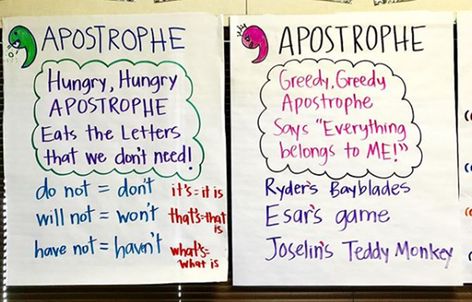 APOSTROPHE
Hungry, Hungry
APOSTROPHE
Eats the Letters
that we don't need!
do not = don't
it's = it is
will not = won't
that's = that
is
have not = haven't
what's =
What is
APOSTROPHE
Greedy, Greedy
Apostrophe
Says "Everything
belongs to ME!"
Ryder's Bayblades
Esar's game
Joselin's Teddy Monkey